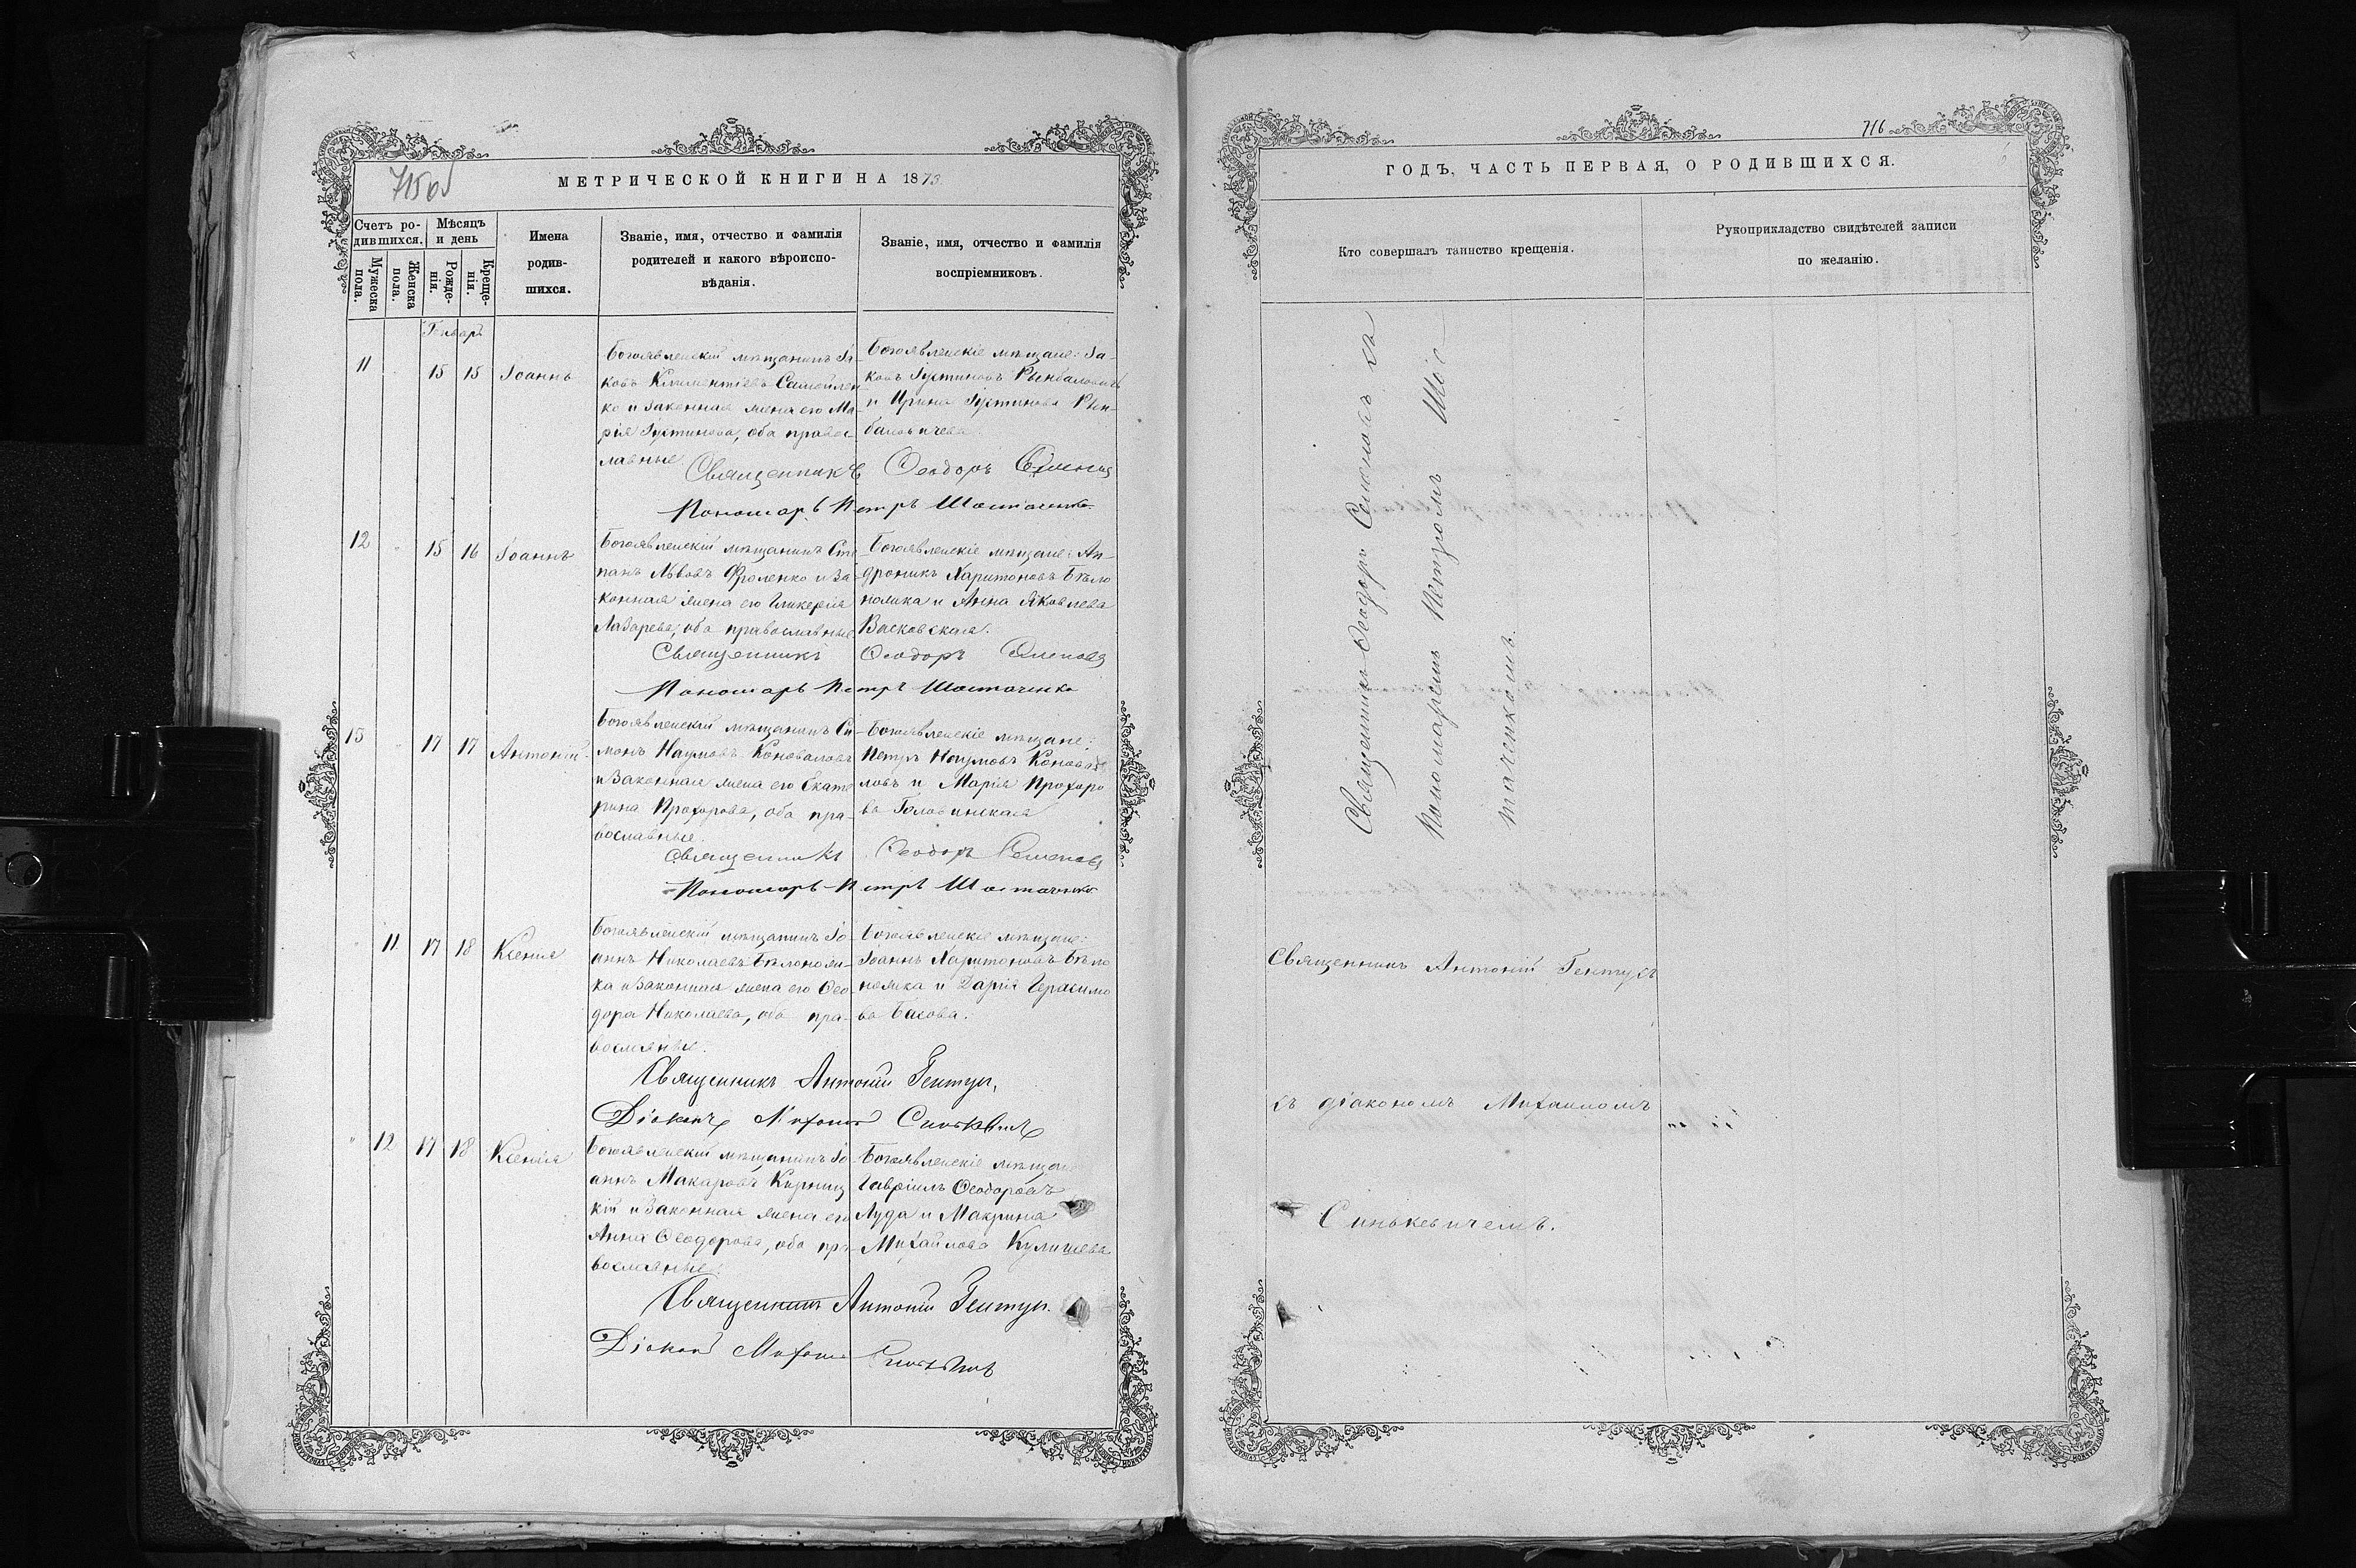 715об
МЕТРИЧЕСКОЙ КНИГИ НА 1873
Счетъ ро-
дившихся.
Мужеска
пола.
Женска
пола.
Мѣсяцъ
и день
Рожде-
нія.
Креще-
нія.
Имена
родив-
шихся.
Званіе, имя, отчество и фамилія
родителей и какого вѣроиспо-
вѣданія.
Званіе, имя, отчество и фамилія
воспріемниковъ.
Генварь
11 15 15 Іоаннъ
Богоявленскій мѣщанинъ Іа-
ковъ Климентіевъ Самойлен
ко и законная жена его Ма-
рія Іустинова, оба правос-
лавные
Богоявленскіе мѣщане: Іа-
ковъ Іустиновъ
и Ирина Іустинова
Священникъ Феодоръ
Пономарь Петръ Шостаченко
12 15 16 Іоаннъ
Богоявленскій мѣщанинъ Сте
панъ Львовъ Фроленко и за-
конная жена его Гликерія
Лазарева, оба православные
Богоявленскіе мѣщане: Ан-
дроникъ Харитоновъ Бѣло
ножка и Анна Яковлева
Васковская.
Священникъ Феодоръ Семеновъ
Пономарь Петръ Шостаченко
13 17 17 Антоній
Богоявленскій мѣщанинъ Си
монъ Наумовъ Коноваловъ
и законная жена его Екате
рина Прохорова, оба пра-
вославные.
Богоявленскіе мѣщане:
Петръ Наумовъ Конова
ловъ и Марія Прохоро
ва Головинская
Священникъ Феодоръ Семеновъ
Пономарь Петръ Шостаченко
11 17 18 Ксенія
Богоявленскій мѣщанинъ Іо-
аннъ Николаевъ Бѣлонож-
ка и законная жена его Фео
дора Николаева, оба пра-
вославные.
Богоявленскіе мѣщане:
Іоаннъ Харитоновъ Бѣло
ножка и Дарія Герасимо
ва Басова.
Священникъ Антоній Гентуръ
Діаконъ Михаилъ Синькевичъ
12 17 18 Ксенія
Богоявленскій мѣщанинъ Іо-
аннъ Макаровъ Курниц
кій и законная жена его
Анна Феодорова, оба пра-
вославные.
Богоявленскіе мѣщане
Гавріилъ Феодоровъ
Луда и Макрина
Михайлова Кулишева
Священникъ Антоній Гентуръ.
Діаконъ Михаилъ Синькевичъ
716
ГОДЪ, ЧАСТЬ ПЕРВАЯ, О РОДИВШИХСЯ.
Кто совершалъ таинство крещенія.
Рукоприкладство свидѣтелей записи
по желанію.
Священникъ Феодоръ Семеновъ съ
Пономаремъ Петромъ Шос
таченкомъ.
Священникъ Антоній Гентуръ
съ діакономъ Михаиломъ
Синькевичемъ.